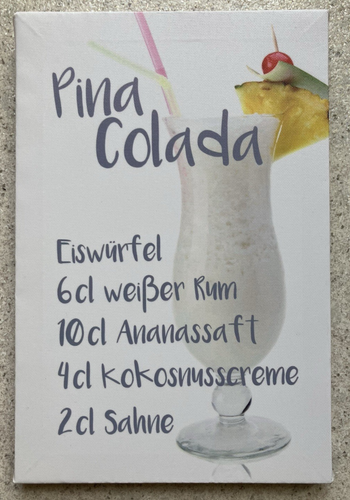 Pina
Colada
Eiswürfel
6cl weißer Rum
10cl Ananassaft
4cl Kokosnusscreme
2cl Sahne